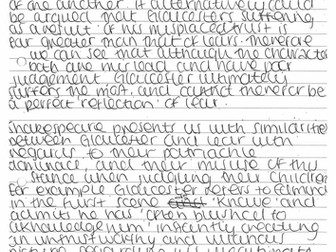 of the one. It alternatively could
be argued that Gloucesters suffering
as a result of his misplaced trust is
far greater than that of Lears. Therefore
we can see that although the character
both are misread and have poor
judgement Gloucester ultimately
suffers the most, and cannot therefore be
a perfect 'reflection' of Lear.
Shakespeare presents us with similarities
between Gloucester and Lear with
regards to their patriachle
dominance, and their misuse of this
stance when judging their children
for example Gloucester refers to Edmund
in the first scene 'knave' and
admits he has 'often blushed to
acknowledge him' instantly creating
an
picture